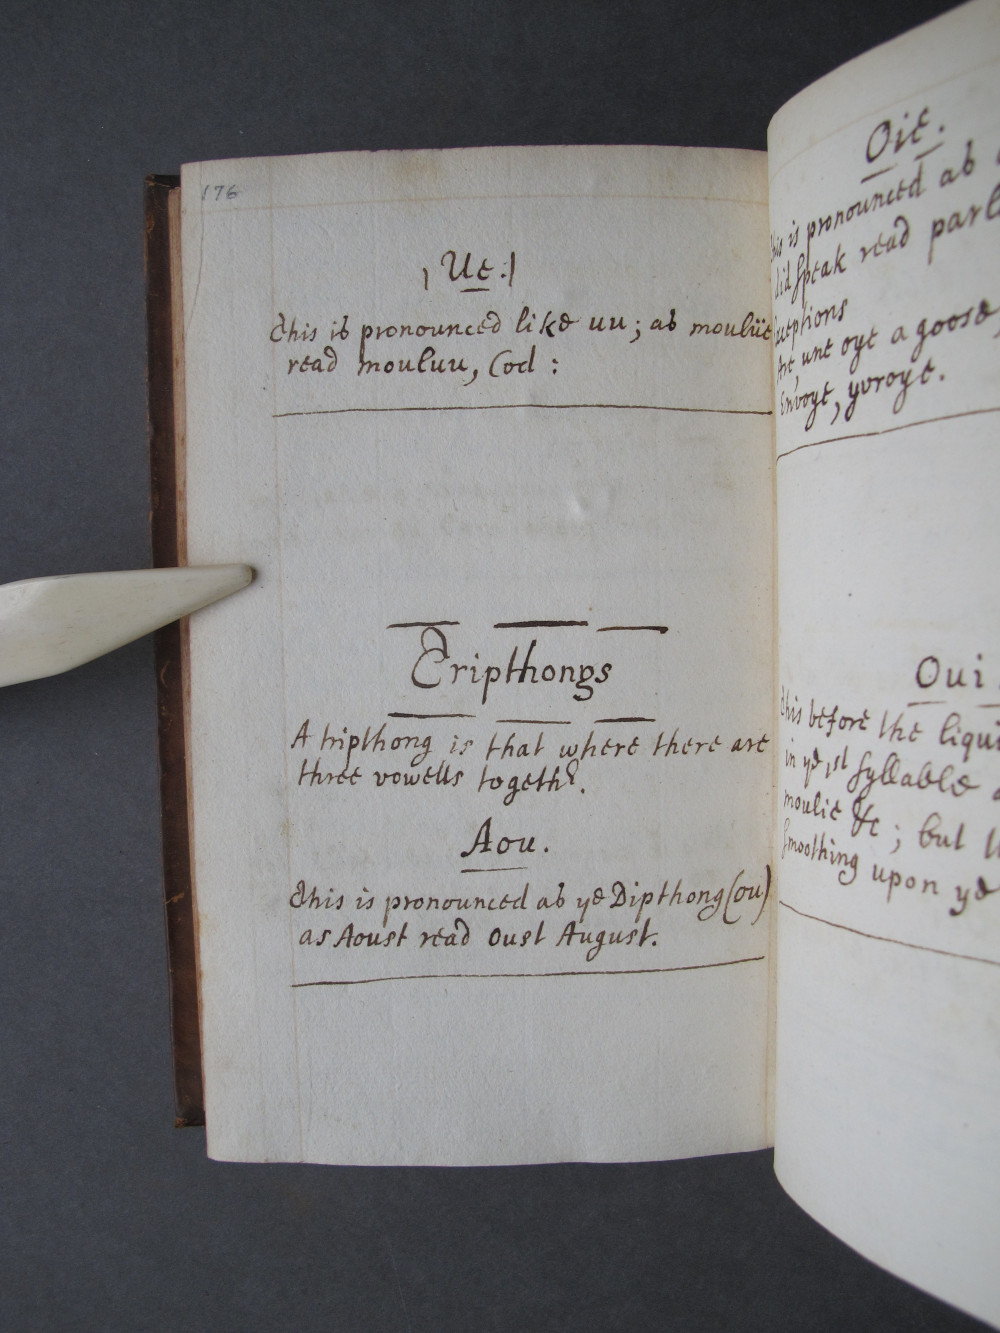 176
Ue.
This is pronounced like uu; as moulüe
read mouluu, Cod:
Tripthongs
A tripthong is that where there are
three vowells togethr.
Aou.
This is pronounced as ye Dipthong (ou)
as Aoust read oust August.
Oie.
this is pronounced as
did speak read
Exceptions
une oye a goose
Envoye, yvroye.
Oui
this before the
in ye 1st syllable
moulie &c; but
smoothing upon ye